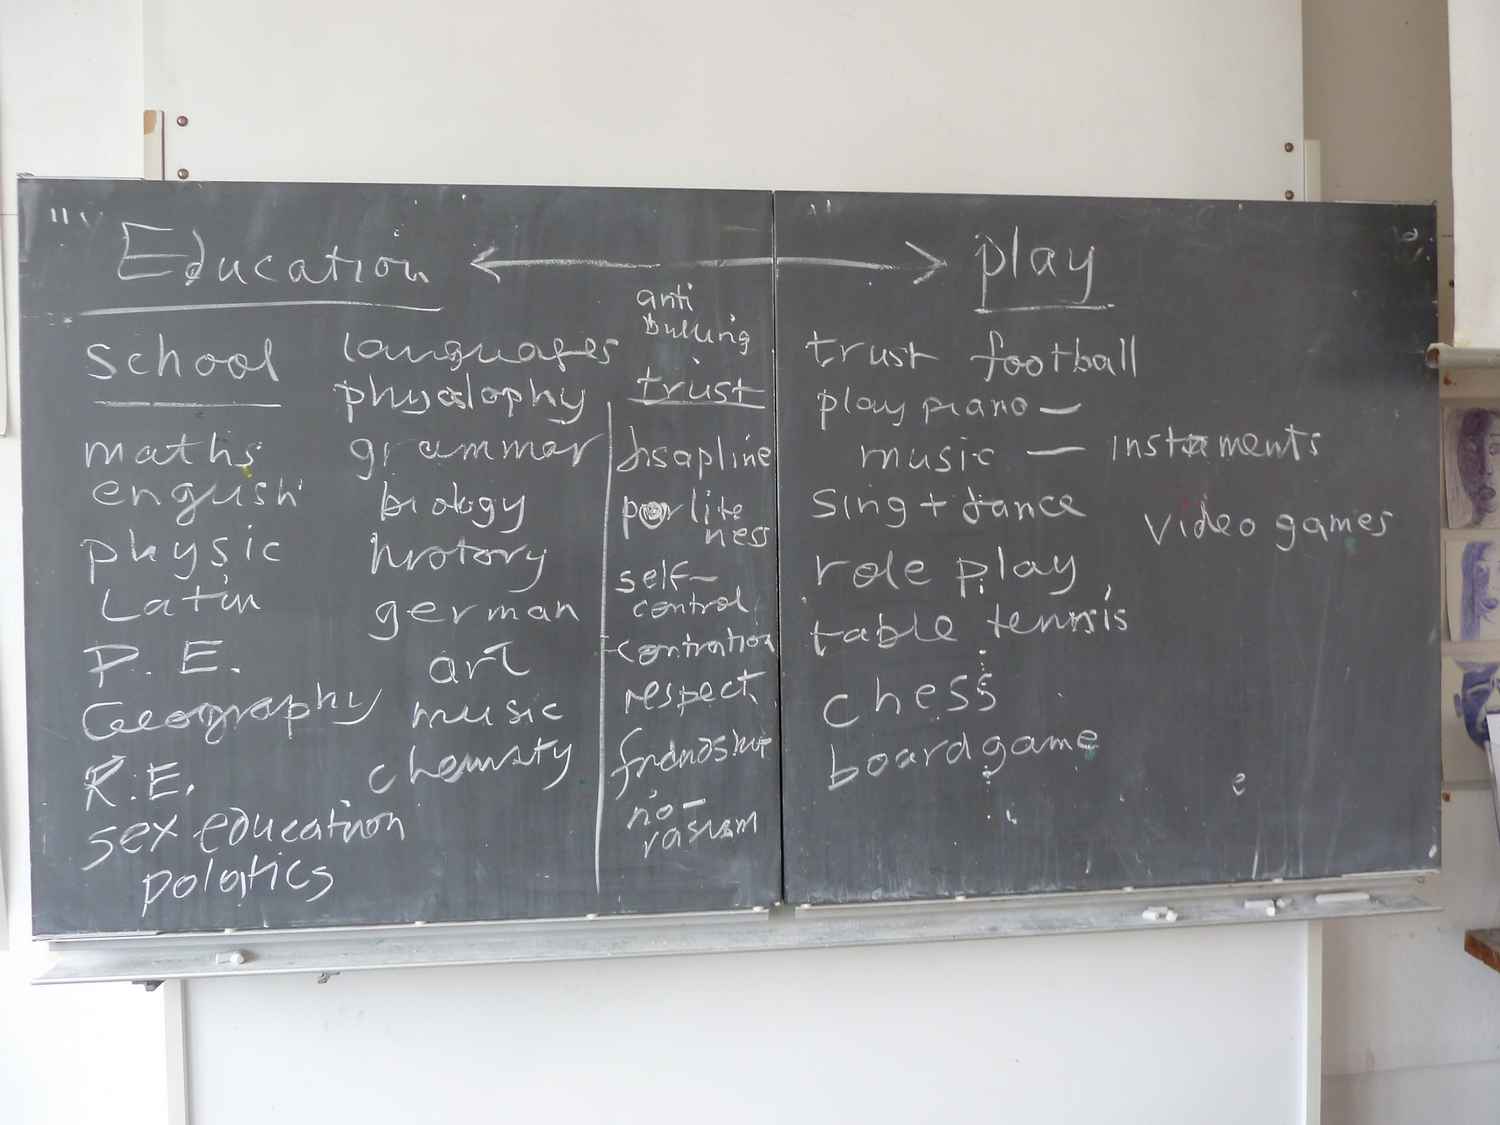 Education ← → play
school
maths
english
physic
Latin
P. E.
Geography
R.E.
sex education
polatics
languages
physolophy
grammar
biology
hrotory
german
art
music
chemisty
anti
bulling
trust
disapline
porlite
ness
self-
control
contration
respect
no-
rasism
trust football
play piano —
music — instaments
sing + dance
video games
role play
table tennis
chess
boardgame